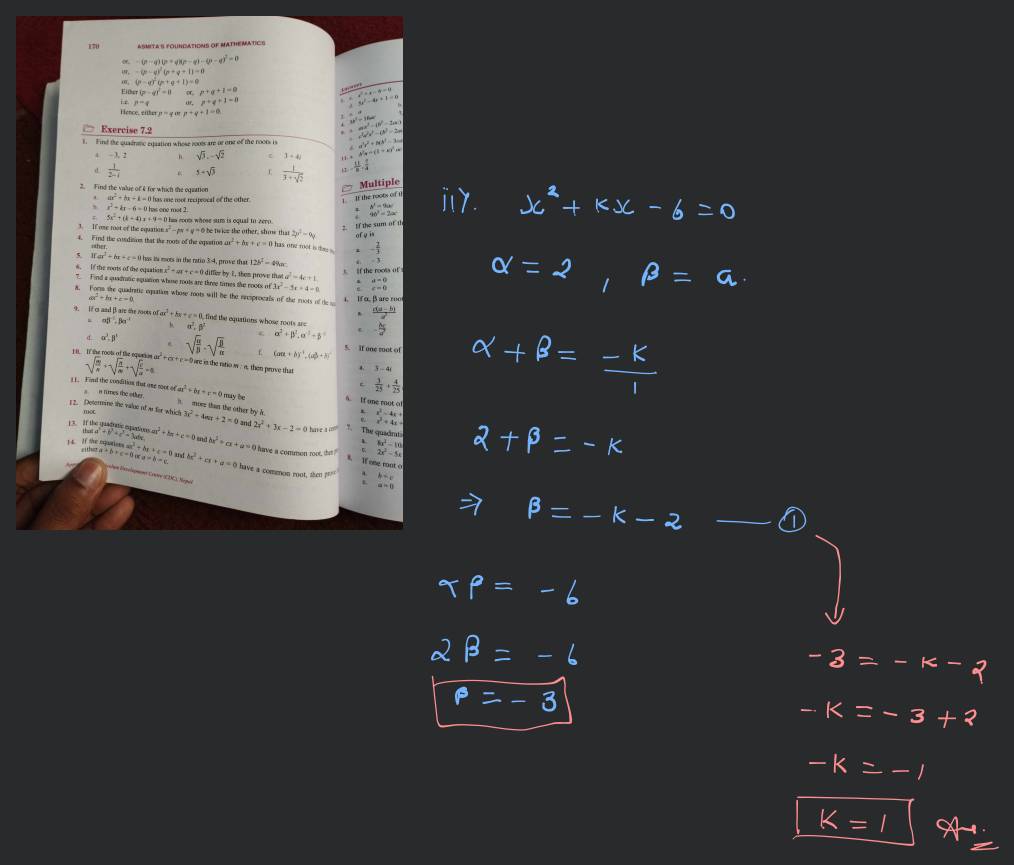 170 ASMITA'S FOUNDATIONS OF MATHEMATICS
or, −(p−q)(p+q)(p−q)−(p−q)²=0
or, −(p−q)²(p+q+1)=0
or, (p−q)²(p+q+1)=0
Either (p−q)²=0 or, p+q+1=0
i.e. p=q or, p+q+1=0
Hence, either p=q or p+q+1=0.
Exercise 7.2
1. Find the quadratic equation whose roots are or one of the roots is
a. −3, 2 b. √3, −√2 c. 3+4i
d. 1/(2−i) e. 5+√3 f. 1/(3+√2)
2. Find the value of k for which the equation
a. ax²+bx+k=0 has one root reciprocal of the other.
b. x²+kx−6=0 has one root 2.
c. 5x²+(k+4)x+9=0 has roots whose sum is equal to zero.
3. If one root of the equation x²−px+q=0 be twice the other, show that 2p²=9q.
4. Find the condition that the roots of the equation ax²+bx+c=0 has one root is
other.
5. If ax²+bx+c=0 has its roots in the ratio 3:4, prove that 12b²=49ac.
6. If the roots of the equation x²+ax+c=0 differ by 1, then prove that a²=4c+1.
7. Find a quadratic equation whose roots are three times the roots of 3x²−5x+4=0.
8. Form the quadratic equation whose roots will be the reciprocals of the roots of the
ax²+bx+c=0.
9. If α and β are the roots of ax²+bx+c=0, find the equations whose roots are
a. αβ⁻¹, βα⁻¹ b. α², β² c. α²+β², α⁻²+β⁻²
d. α³, β³ e. √(α/β), √(β/α) f. (aα+b)⁻¹, (aβ+b)⁻¹
10. If the roots of the equation ax²+cx+c=0 are in the ratio m : n, then prove that
√(m/n)+√(n/m)+√(c/a)=0.
11. Find the condition that one root of ax²+bx+c=0 may be
a. n times the other. b. more than the other by h.
12. Determine the value of m for which 3x²+4mx+2=0 and 2x²+3x−2=0 have a
root.
13. If the quadratic equations ax²+bx+c=0 and bx²+cx+a=0 have a common root, then
that a³+b³+c³=3abc.
14. If the equations ax²+bx+c=0 and bx²+cx+a=0 have a common root, then
either a+b+c=0 or a=b=c.
Development Centre (CDC), Nepal
Answers
Multiple
1. If the roots of
a. b²=9ac
c. 9b²=2ac
2. If the sum of
of q is
a. −2/3
c. −3
3. If the roots of
a. a=0
c. c=0
4. If α, β are root
5. If one root of
a. 3−4i
c. 3/25+4/25
6. If one root of
a. x²−4x+
c. x²+4x
7. The quadrati
a. 8x²−10
c. 2x²−5x
8. If one root o
a. b=c
c. a=0
ii). x²+kx−6=0
α=2, β=a.
α+β=−k/1
2+β=−k
⇒ β=−k−2 — ①
αβ=−6
2β=−6
β=−3
−3=−k−2
−k=−3+2
−k=−1
k=1 Ans.